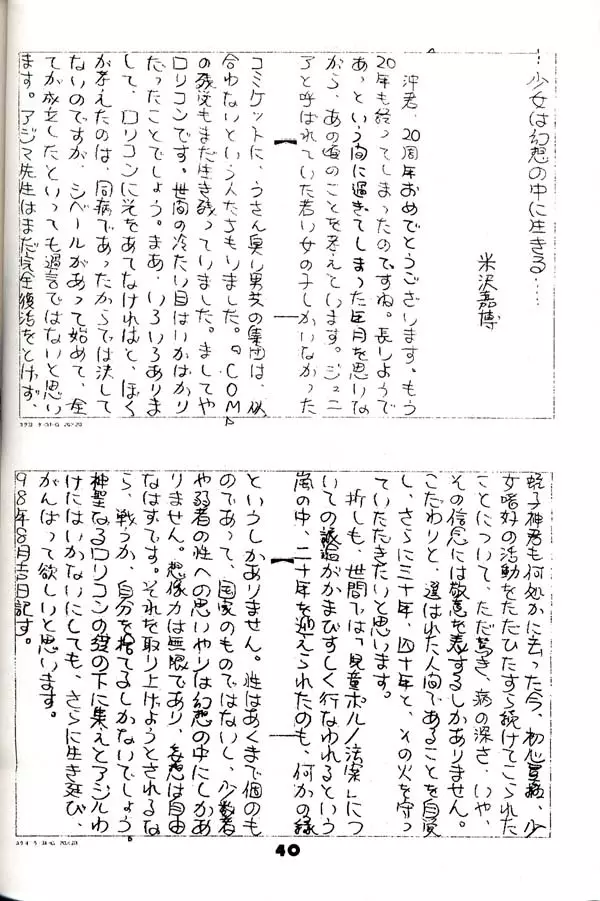 少女は幻想の中に生きる……
米沢嘉博
沖君、20周年おめでとうございます。もう
20年も経ってしまったのですね。長いようで
あっという間に過ぎてしまった年月を思いな
がら、あの頃のことを考えています。ジュニ
アと呼ばれていた若い女の子しかいなかった
コミケットに、うさん臭い男共の集団は、似
合わないという人たちもいました。『COM』
の残党もまだ生き残っていました。ましてや
ロリコンです。世間の冷たい目はいかばかり
だったことでしょう。まあ、いろいろありま
して、ロリコンに光をあてなければと、ぼく
が考えたのは、同病であったからでは決して
ないのですが、シベールがあって始めて、全
てが成立したといっても過言ではないと思い
ます。アジマ先生はまだ完全復活をとげず、
蛭子神君も何処かに去った今、初心冒病、少
女嗜好の活動をただひたすら続けてこられた
ことについて、ただ驚き、病の深さ、いや、
その信念には敬意を表するしかありません。
こだわりと、選ばれた人間であることを自覚
し、さらに三十年、四十年と、その火を守っ
ていただきたいと思います。
折しも、世間では「児童ポルノ法案」につ
いての議論がかまびすしく行なわれるという
嵐の中、二十年を迎えられたのも、何かの縁
というしかありません。性はあくまで個のも
のであって、国家のものではないし、少数者
や弱者の性への思いやりは幻想の中にしかあ
りません。想像力は無限であり、妄想は自由
なはずです。それを取り上げようとされるな
ら、戦うか、自分を捨てるしかないでしょう。
神聖なるロリコンの旗の下に集えとアジルわ
けにはいかないにしても、さらに生き延び、
がんばって欲しいと思います。
98年8月吉日記す。
コクヨ ケ-31-G 20×20
コクヨ ケ-31-G 20×20
40